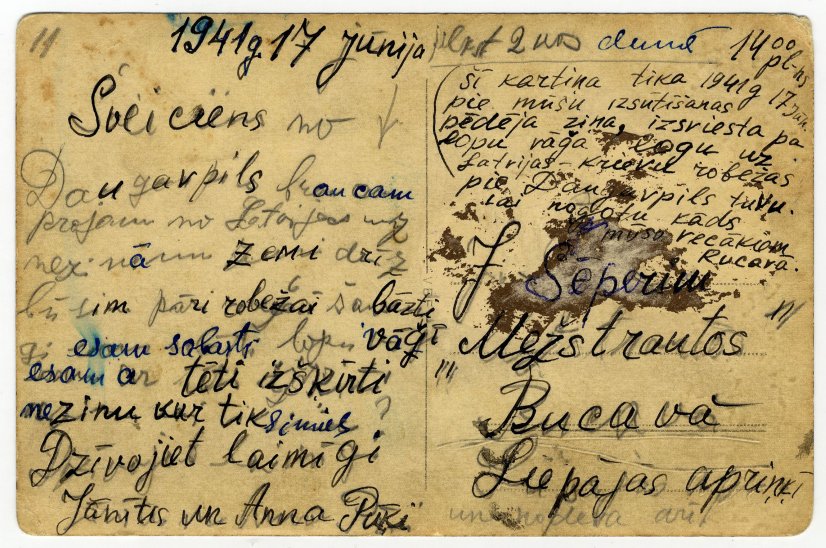 11
1941g 17 jūnija
Sveiciens no
Daugavpils braucam
projam no Latvijas uz
nezināmu zemi drīz
būsim pāri robežai sabāzti
gi esam sabāsti lopu vāģī
esam ar tēti izšķirti
nezinu kur tiksimies ?
Dzīvojiet laimīgi
Jānītis un Anna Pūķi
plkst 2 nos dienā 1400
pl-ns
(Šī kartiņa tika 1941g 17 jūn.
pie mūsu izsūtīšanas
pēdēja ziņa, izsviesta pa
lopu vāģa logu uz
Latvijas-Krievu robežas
pie Daugavpils tuvu.
lai nodotu kāds
mūsu vecākiem
Rucavā.
J Sēperim
"Mežstrautos"
Bucavā
Liepājas apriņķī